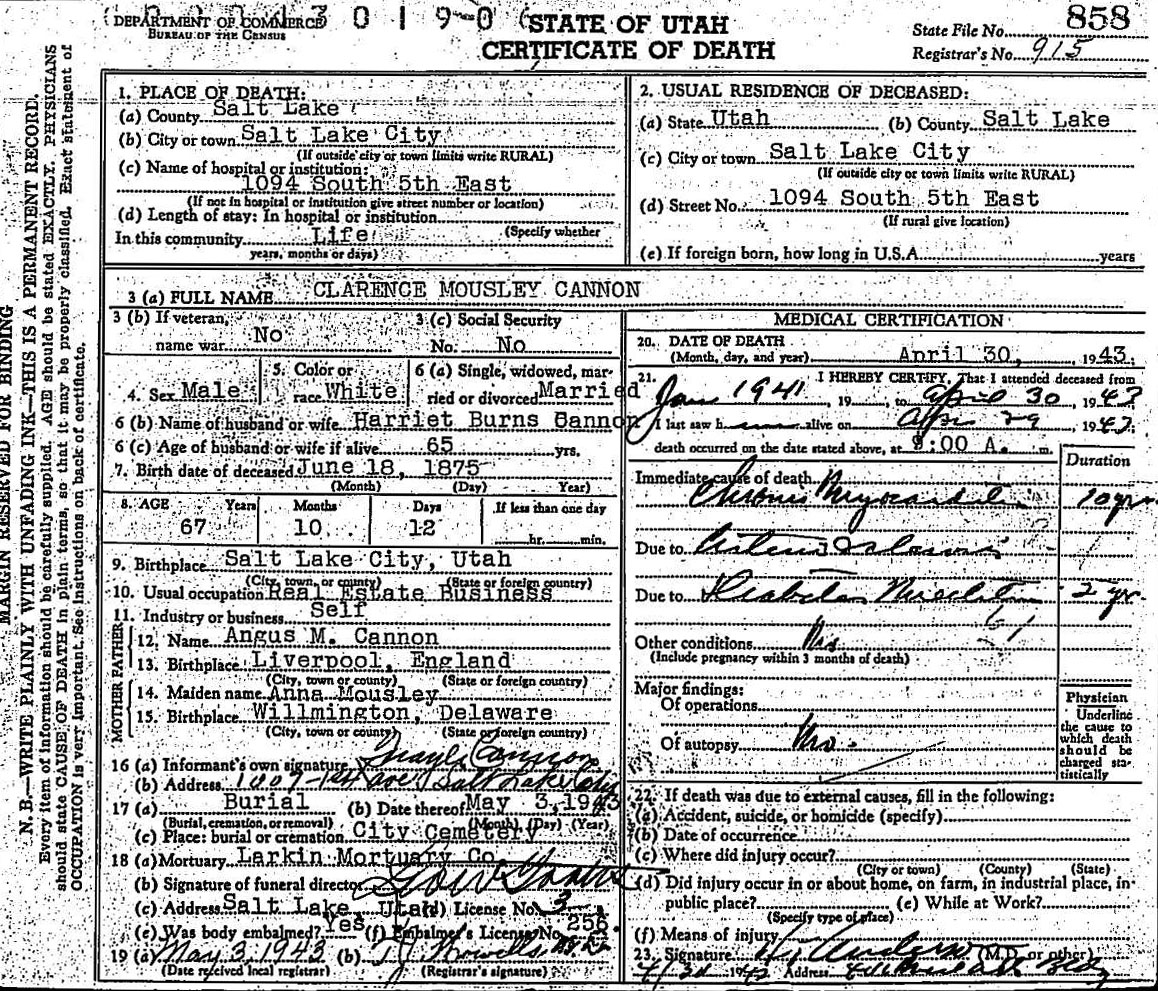 DEPARTMENT OF COMMERCE
BUREAU OF THE CENSUS
STATE OF UTAH
CERTIFICATE OF DEATH
State File No. 858
Registrar's No. 915
MARGIN RESERVED FOR BINDING
N. B.—WRITE PLAINLY WITH UNFADING INK—THIS IS A PERMANENT RECORD.
Every item of information should be carefully supplied. AGE should be stated EXACTLY. PHYSICIANS
should state CAUSE OF DEATH in plain terms, so that it may be properly classified. Exact statement of
OCCUPATION is very important. See instructions on back of certificate.
1. PLACE OF DEATH:
(a) County Salt Lake
(b) City or town Salt Lake City
(If outside city or town limits write RURAL)
(c) Name of hospital or institution:
1094 South 5th East
(If not in hospital or institution give street number or location)
(d) Length of stay: In hospital or institution
(Specify whether
In this community Life
years, months or days)
2. USUAL RESIDENCE OF DECEASED:
(a) State Utah (b) County Salt Lake
(c) City or town Salt Lake City
(If outside city or town limits write RURAL)
(d) Street No. 1094 South 5th East
(If rural give location)
(e) If foreign born, how long in U.S.A. years
3 (a) FULL NAME CLARENCE MOUSLEY CANNON
3 (b) If veteran, name war No
3 (c) Social Security No. No
4. Sex Male
5. Color or race White
6 (a) Single, widowed, married or divorced Married
6 (b) Name of husband or wife Harriet Burns Cannon
6 (c) Age of husband or wife if alive 65 yrs.
7. Birth date of deceased June 18, 1875
(Month) (Day) Year)
8. AGE Years Months Days If less than one day
67 10 12 hr. min.
9. Birthplace Salt Lake City, Utah
(City, town, or county) (State or foreign country)
10. Usual occupation Real Estate Business
11. Industry or business Self
FATHER
12. Name Angus M. Cannon
13. Birthplace Liverpool, England
(City, town or county) (State or foreign country)
MOTHER
14. Maiden name Anna Mousley
15. Birthplace Willmington, Delaware
(City, town or county) (State or foreign country)
16 (a) Informant's own signature Cannon
(b) Address 1007-1st Ave Salt Lake City
17 (a) Burial (b) Date thereof May 3, 1943
(Burial, cremation, or removal) (Month) (Day) (Year)
(c) Place: burial or cremation City Cemetery
18 (a) Mortuary Larkin Mortuary Co
(b) Signature of funeral director
(c) Address Salt Lake, Utah (d) License No. 3
(e) Was body embalmed? Yes (f) Embalmer's License No. 256
19 (a) May 3, 1943 (b) T J Howells
(Date received local registrar) (Registrar's signature)
MEDICAL CERTIFICATION
20. DATE OF DEATH
(Month, day, and year) April 30, 1943
21. I HEREBY CERTIFY, That I attended deceased from
Jan 1941 19 , to April 30, 1943
I last saw h alive on Apr 29 1943
death occurred on the date stated above, at 8:00 A. m.
Duration
Immediate cause of death
Chronic Myocarditis 10 yrs
Due to Arterio Sclerosis
Due to Diabetes Mellitus 2 yr.
61
Other conditions No
(Include pregnancy within 3 months of death)
Major findings:
Of operations
Of autopsy No.
Physician
Underline
the cause to
which death
should be
charged sta-
tistically
22. If death was due to external causes, fill in the following:
(a) Accident, suicide, or homicide (specify)
(b) Date of occurrence
(c) Where did injury occur?
(City or town) (County) (State)
(d) Did injury occur in or about home, on farm, in industrial place, in-
public place? (e) While at Work?
(Specify type of place)
(f) Means of injury
23. Signature (M.D. or other)
4/30 1943 Address Bldg